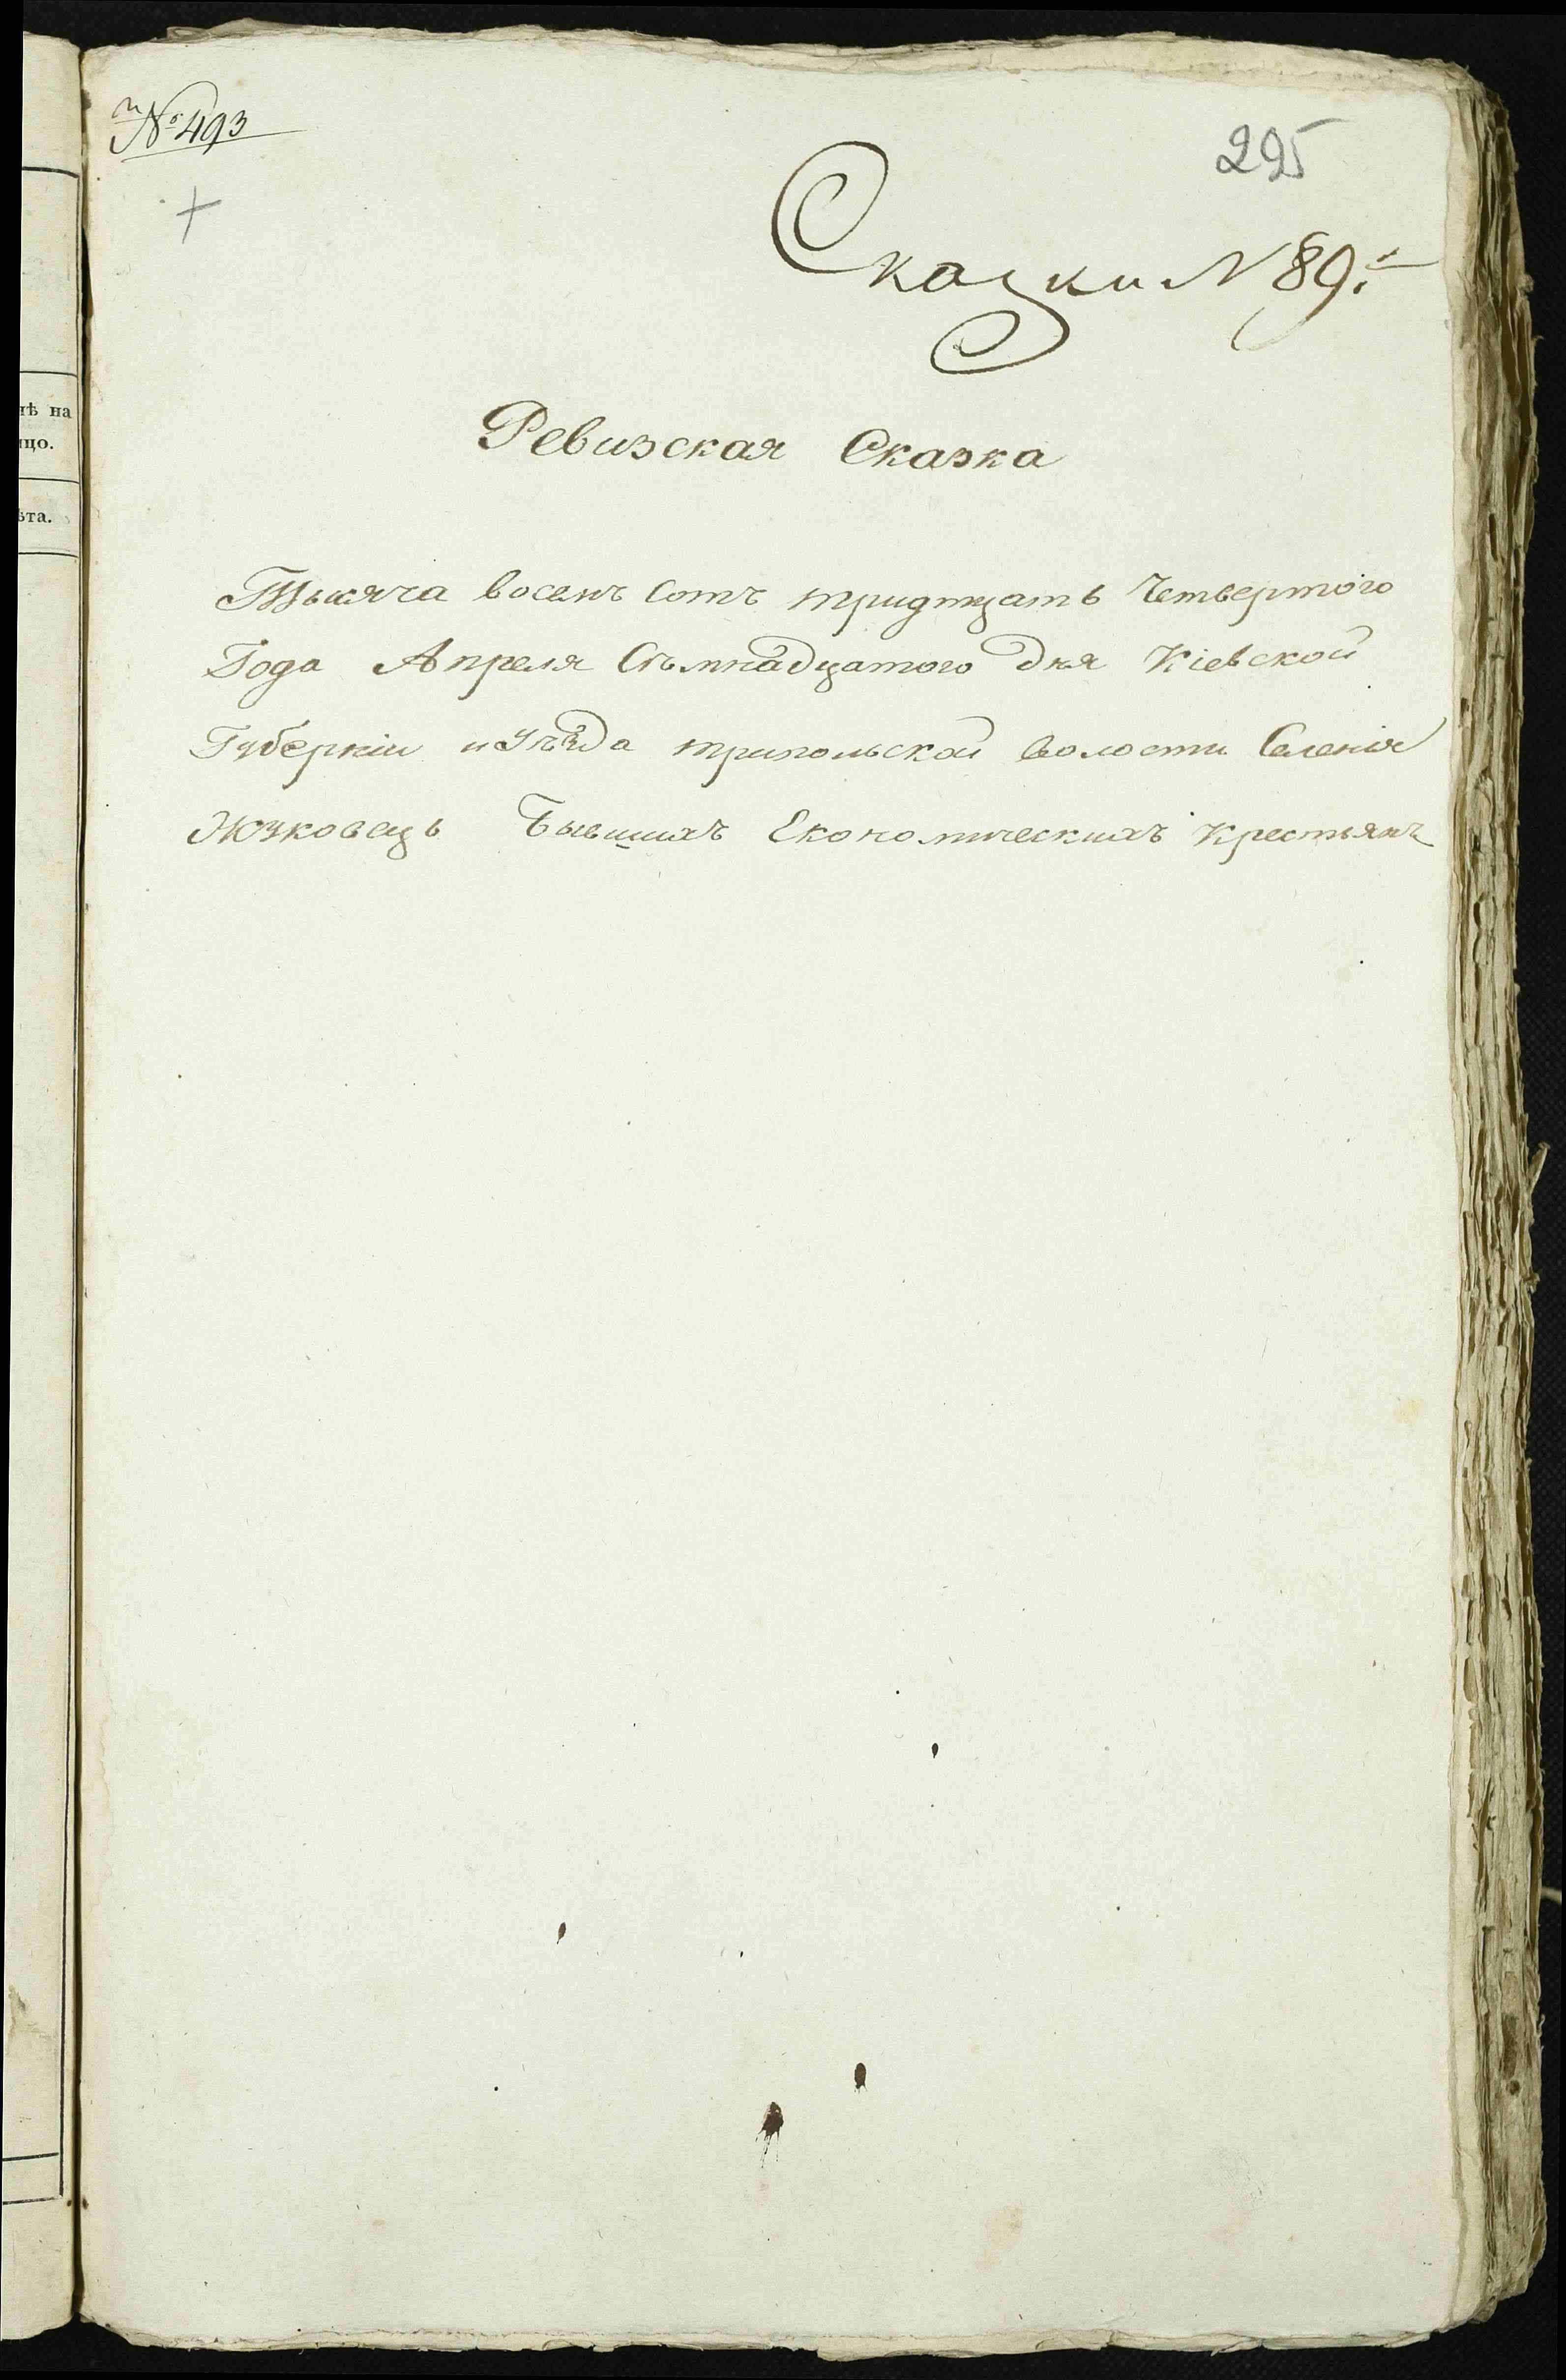 № 493
225
Сказки N 89.
Ревизская Сказка
Тысяча восемъ Сотъ тридтцать Четвертого
Года Апреля Съмнадцатого Дня Кіевской
Губерніи и Уѣзда трипольской волости Селенія
Жюковецъ Бывшихъ Економическихъ Крестьянъ
на
цо.
ѣта.